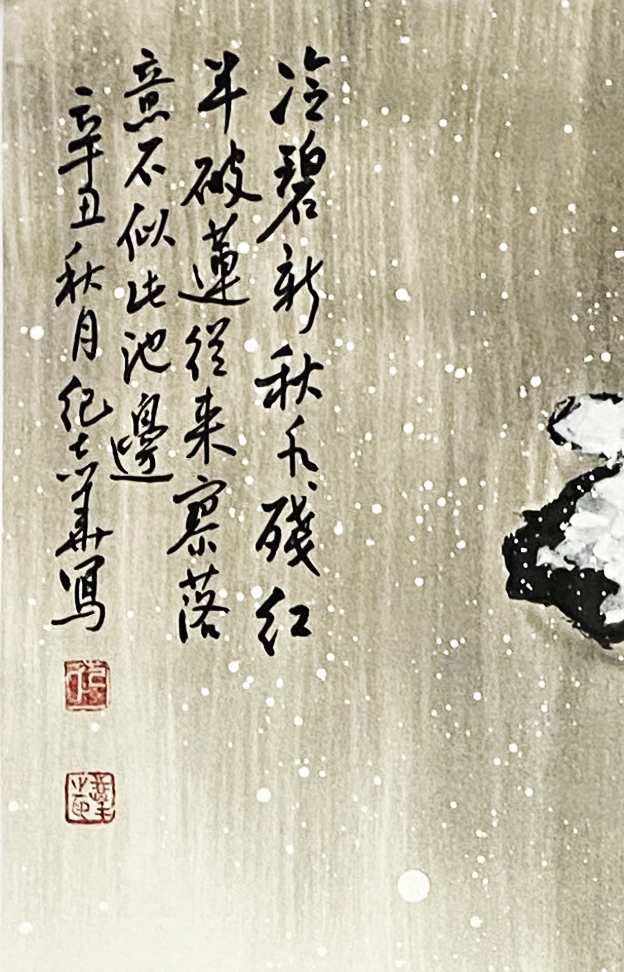 冷碧新秋水殘红
半破蓮從来寥落
意不似此池邊
辛丑秋月纪志華寫